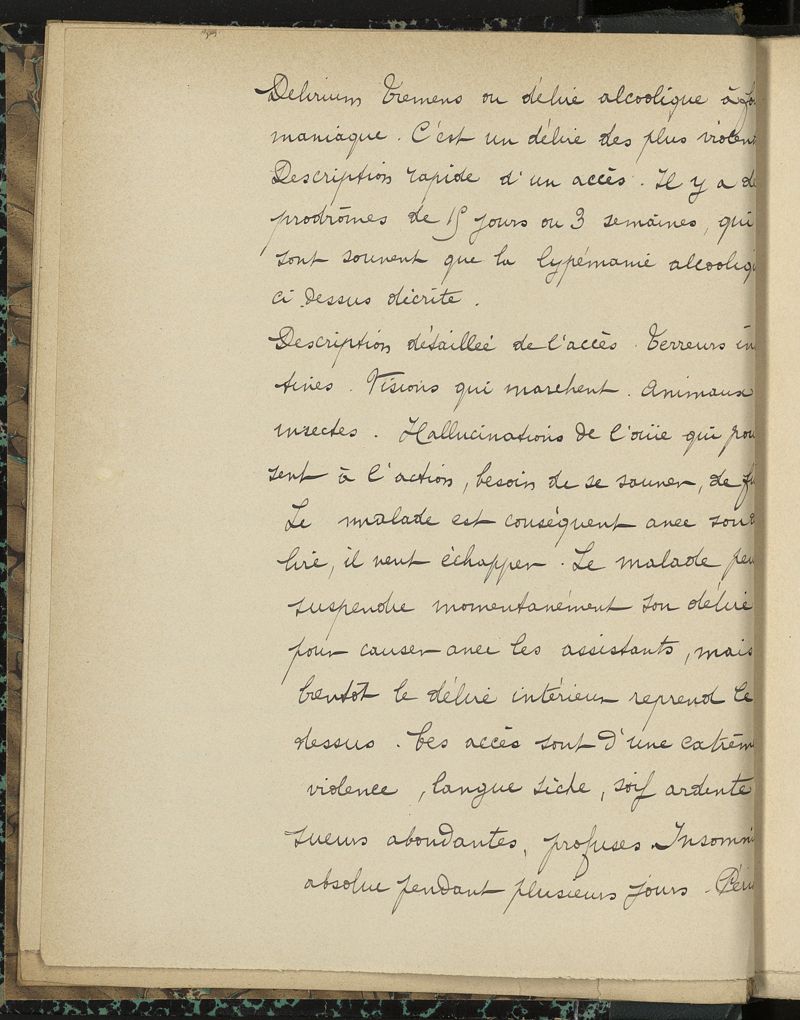 Delirium Tremens ou délire alcoolique à fo
maniaque. C'est un délire des plus violent
Description rapide d'un accès. Il y a de
prodrômes de 15 jours ou 3 semaines, qui
sont souvent que la lypémanie alcooliq
ci dessus décrite.
Description détaillée de l'accès. Terreurs in
tines. Visions qui marchent. Animaux
insectes. Hallucinations de l'ouïe qui pou
sent à l'action, besoin de se sauver, de fu
Le malade est conséquent avec son d
lire, il veut échapper. Le malade peu
suspendre momentanément son délire
pour causer avec les assistants, mais
bientôt le délire intérieur reprend le
dessus. Ces accès sont d'une extrêm
violence, langue sèche, soif ardente
sueurs abondantes, profuses. Insomni
absolue pendant plusieurs jours. Péri